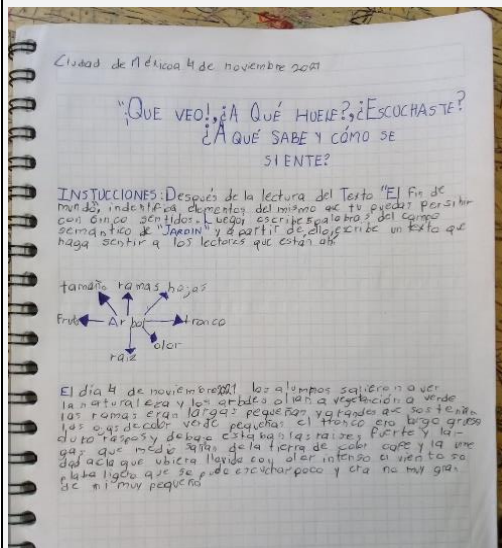 Ciudad de México a 4 de noviembre 2021
"¡QUE VEO!,¿A QUÉ HUELE?,¿ESCUCHASTE?
¿A QUÉ SABE Y CÓMO SE
SIENTE?
INSTUCCIONES: Después de la lectura del Texto "El Fin de
mundo, indentifica elementos del mismo que tu puedas persibir
con cinco sentidos. Luego, escribe 5 palabras del campo
semántico de "JARDIN" y a partir de ello, escribe un texto que
haga sentir a los lectores que están ahí
tamaño ramas hojas
Fruto Arbol tronco
raiz olor
El día 4 de noviembre 2021 los alumnos salieron a ver
la naturaleza y los arboles olian a vegetación a verde
las ramas eran largas pequeñas y grandes que sostenian
las ojas de color verde pequeñas el tronco era largo grueso
duro rasposo y debajo estaban las raises, fuerte y lar-
gas que medio salian de la tierra de color cafe y la ume
dad acia que ubiera llovido con olor intenso el viento so
plaba ligero que se pude escuchar poco y era no muy gran
de ni muy pequeño